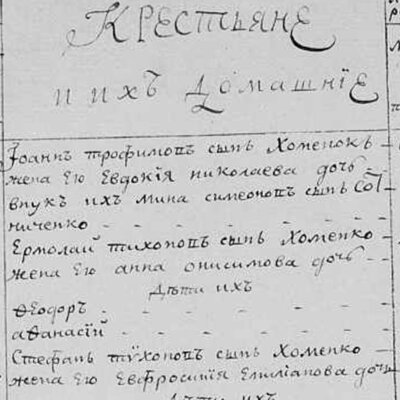 Крестьяне
и ихъ домашніе
Іоаннъ трофимовъ сынъ Хоменокъ -
жена Его Евдокія николаева дочь
внукъ ихъ мина симеоновъ сынъ Сот
ниченко - - - - - -
Ермолай тихоновъ сынъ Хоменко -
жена Его анна онисимова дочь -
Дѣти ихъ
Ѳеодоръ - - - - - -
аѳанасій - - - - - -
Стефанъ тихоновъ сынъ Хоменко -
жена Его Евфросинія Емиліанова дочь
Дѣти ихъ